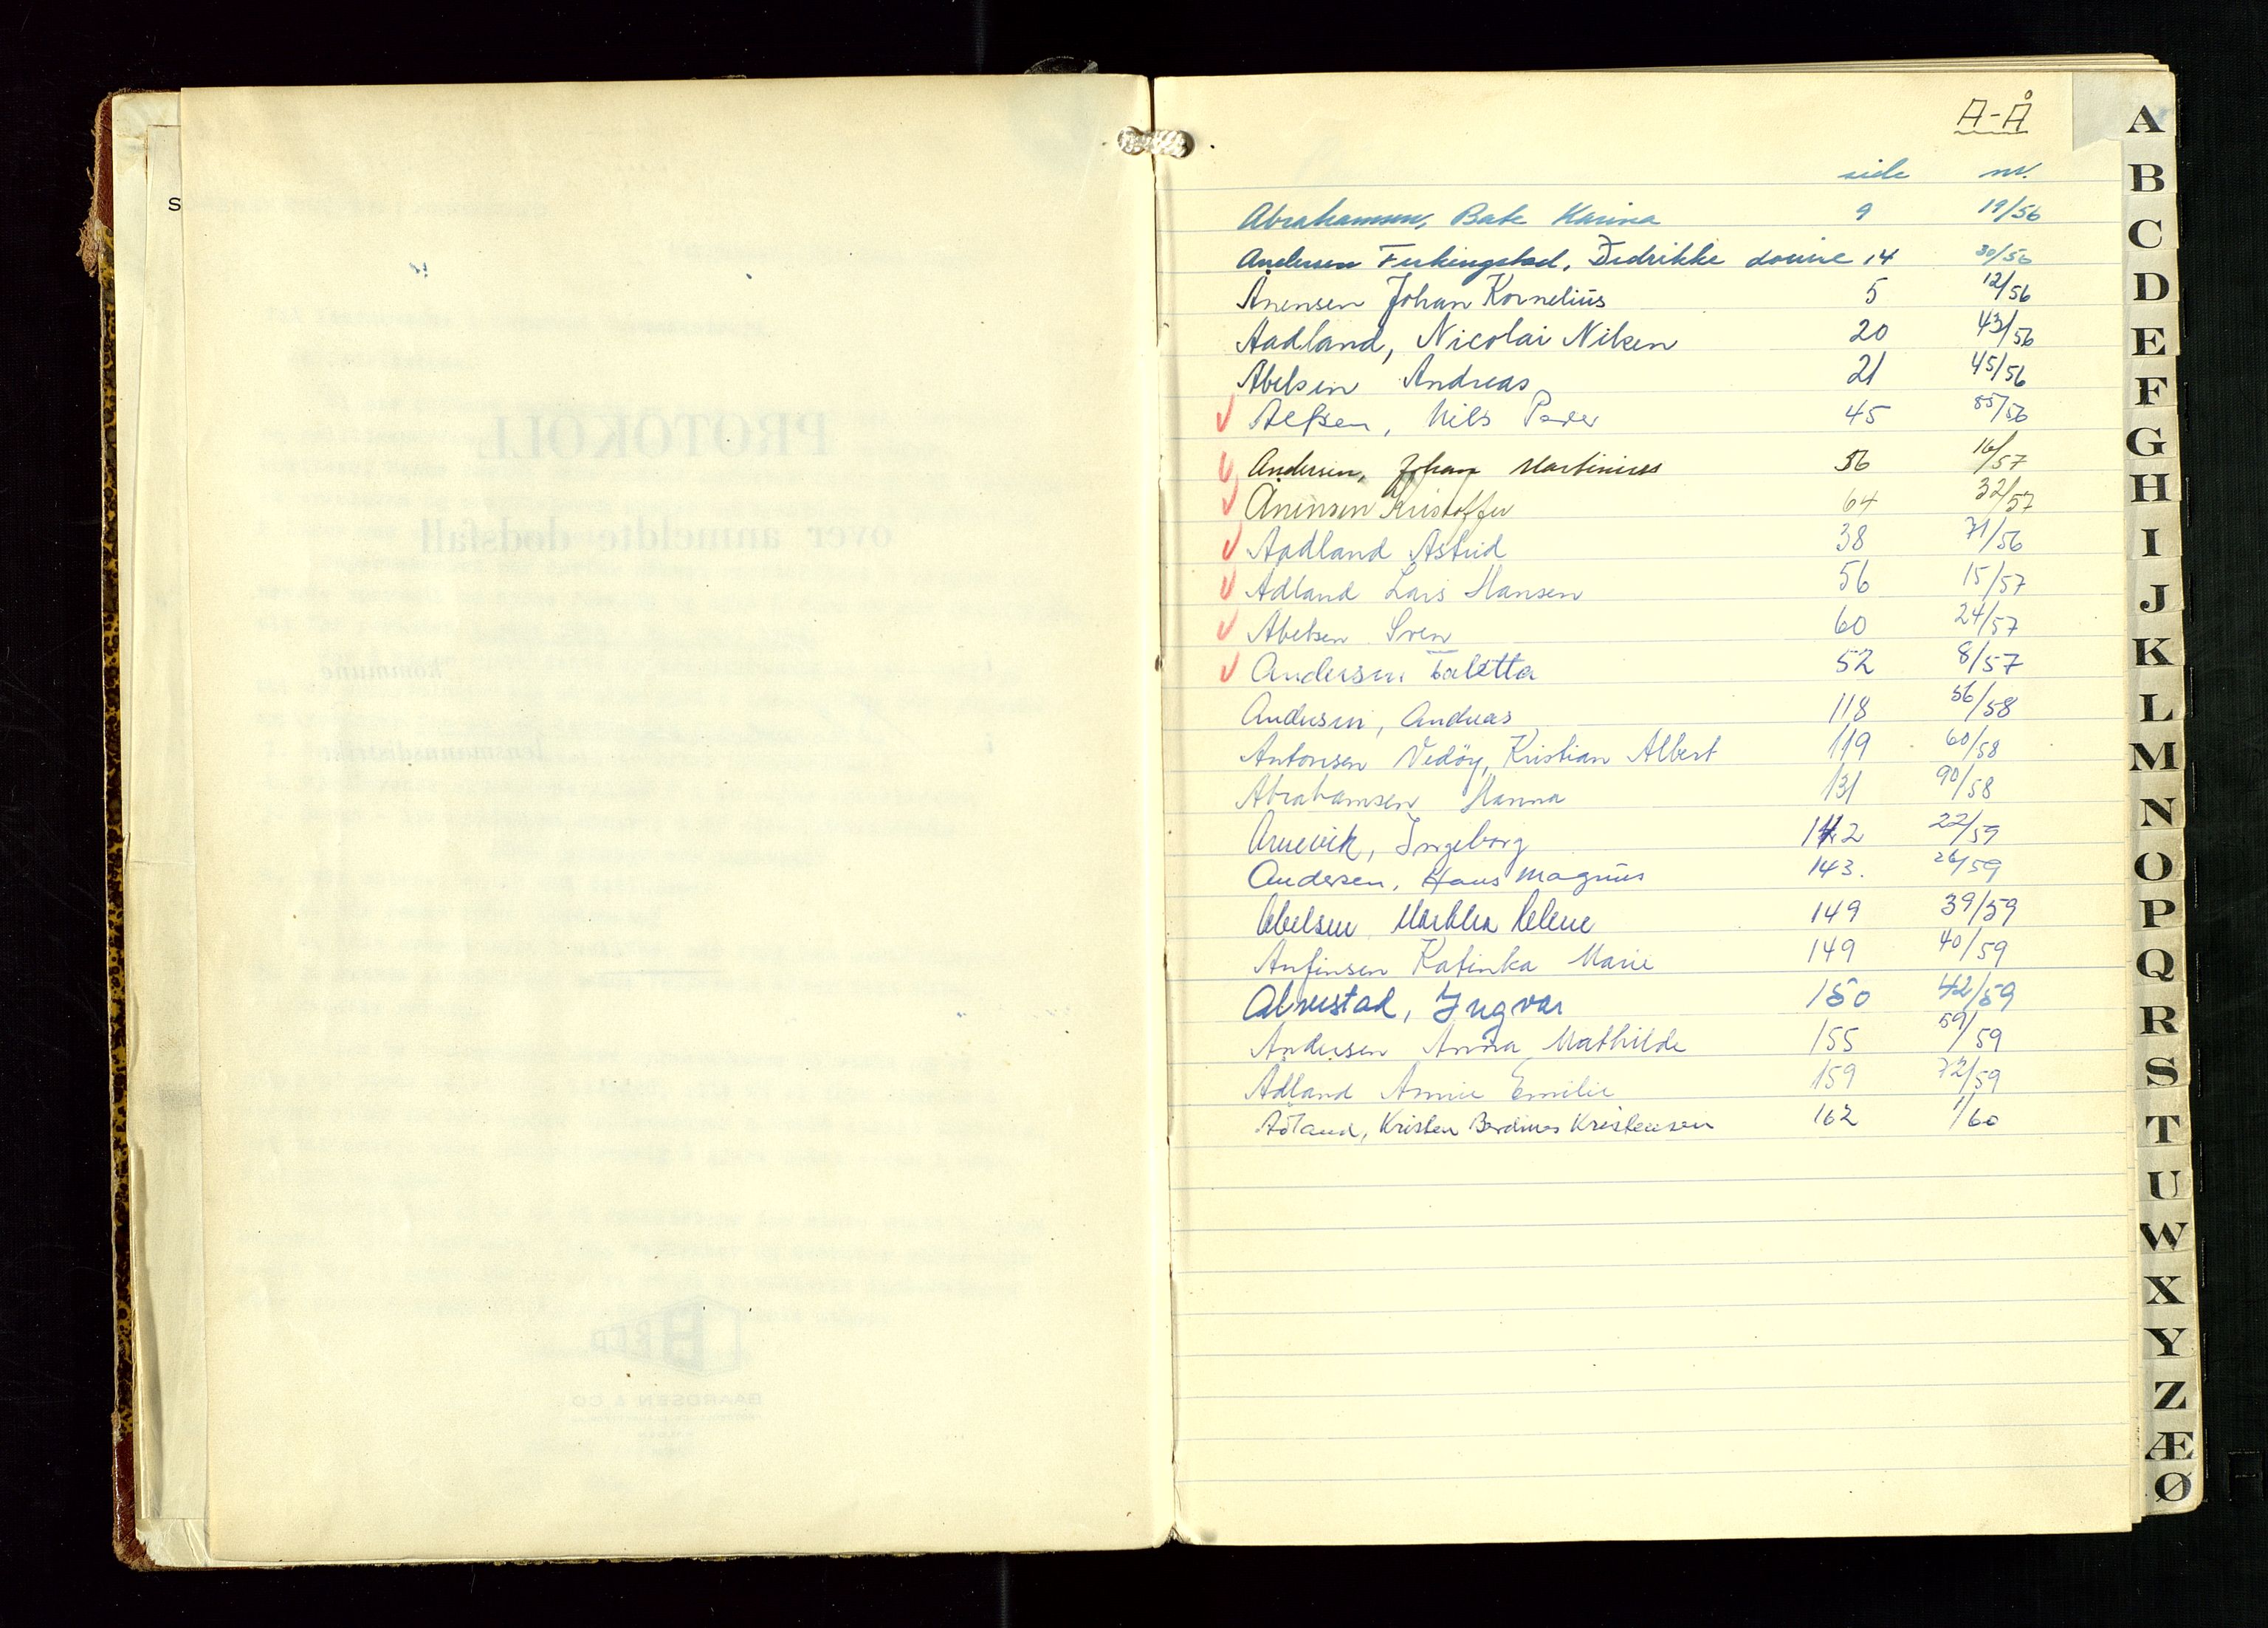 S
A-Å
side nr.
Abrahamsen, Bate Karina 9 19/56
Andersen Ferkingstad, Dedrikke Lovise 14 30/56
Ånensen Johan Kornelius 5 12/56
Aadland, Nicolai Nilsen 20 43/56
Abelsen Andreas 21 45/56
Alfsen, Nils Peder 45 85/56
Andersen, Johan Martinius 56 16/57
Ånensen Kristoffer 64 32/57
Aadland Astrid 38 71/56
Ådland Lars Hansen 56 15/57
Abelsen Sven 60 24/57
Andersen Taletta 52 8/57
Andersen, Andreas 118 56/58
Antonsen Vedøy, Kristian Albert 119 60/58
Abrahamsen Hanna 131 90/58
Arnevik, Ingeborg 142 22/59
Andersen, Hans Magnus 143. 26/59
Abelsen Martha Helene 149 39/59
Anfinsen Katinka Marie 149 40/59
Alnestad, Ingvar 150 42/59
Andersen Anna Mathilde 155 59/59
Ådland Annie Emilie 159 72/59
Kristen Berdines Kristensen 162 1/60
A
B
C
D
E
F
G
H
I
J
K
L
M
N
O
P
Q
R
S
T
U
W
X
Y
Z
Æ
Ø
PROTOKOLL
over anmeldte dødsfall
i kommune
i lensmannsdistrikt
BAARDSEN & CO